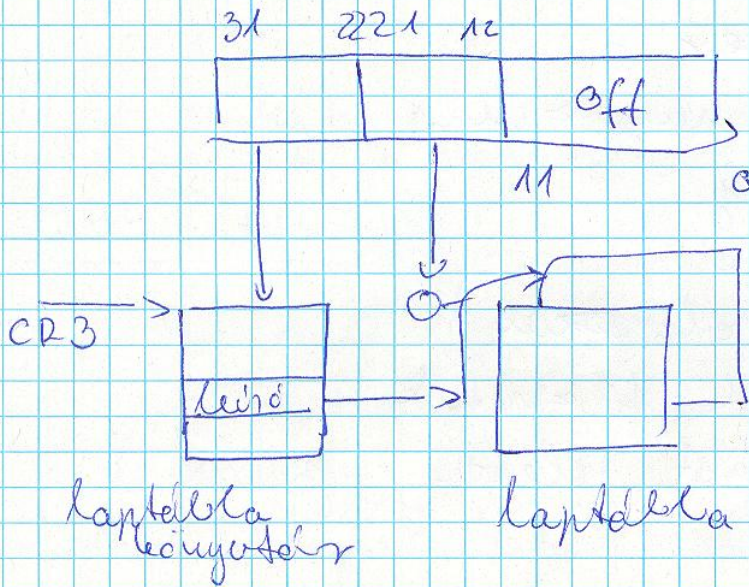 31 2221 12
off
11 0
CR3
leíró
laptábla
könyvtár
laptábla